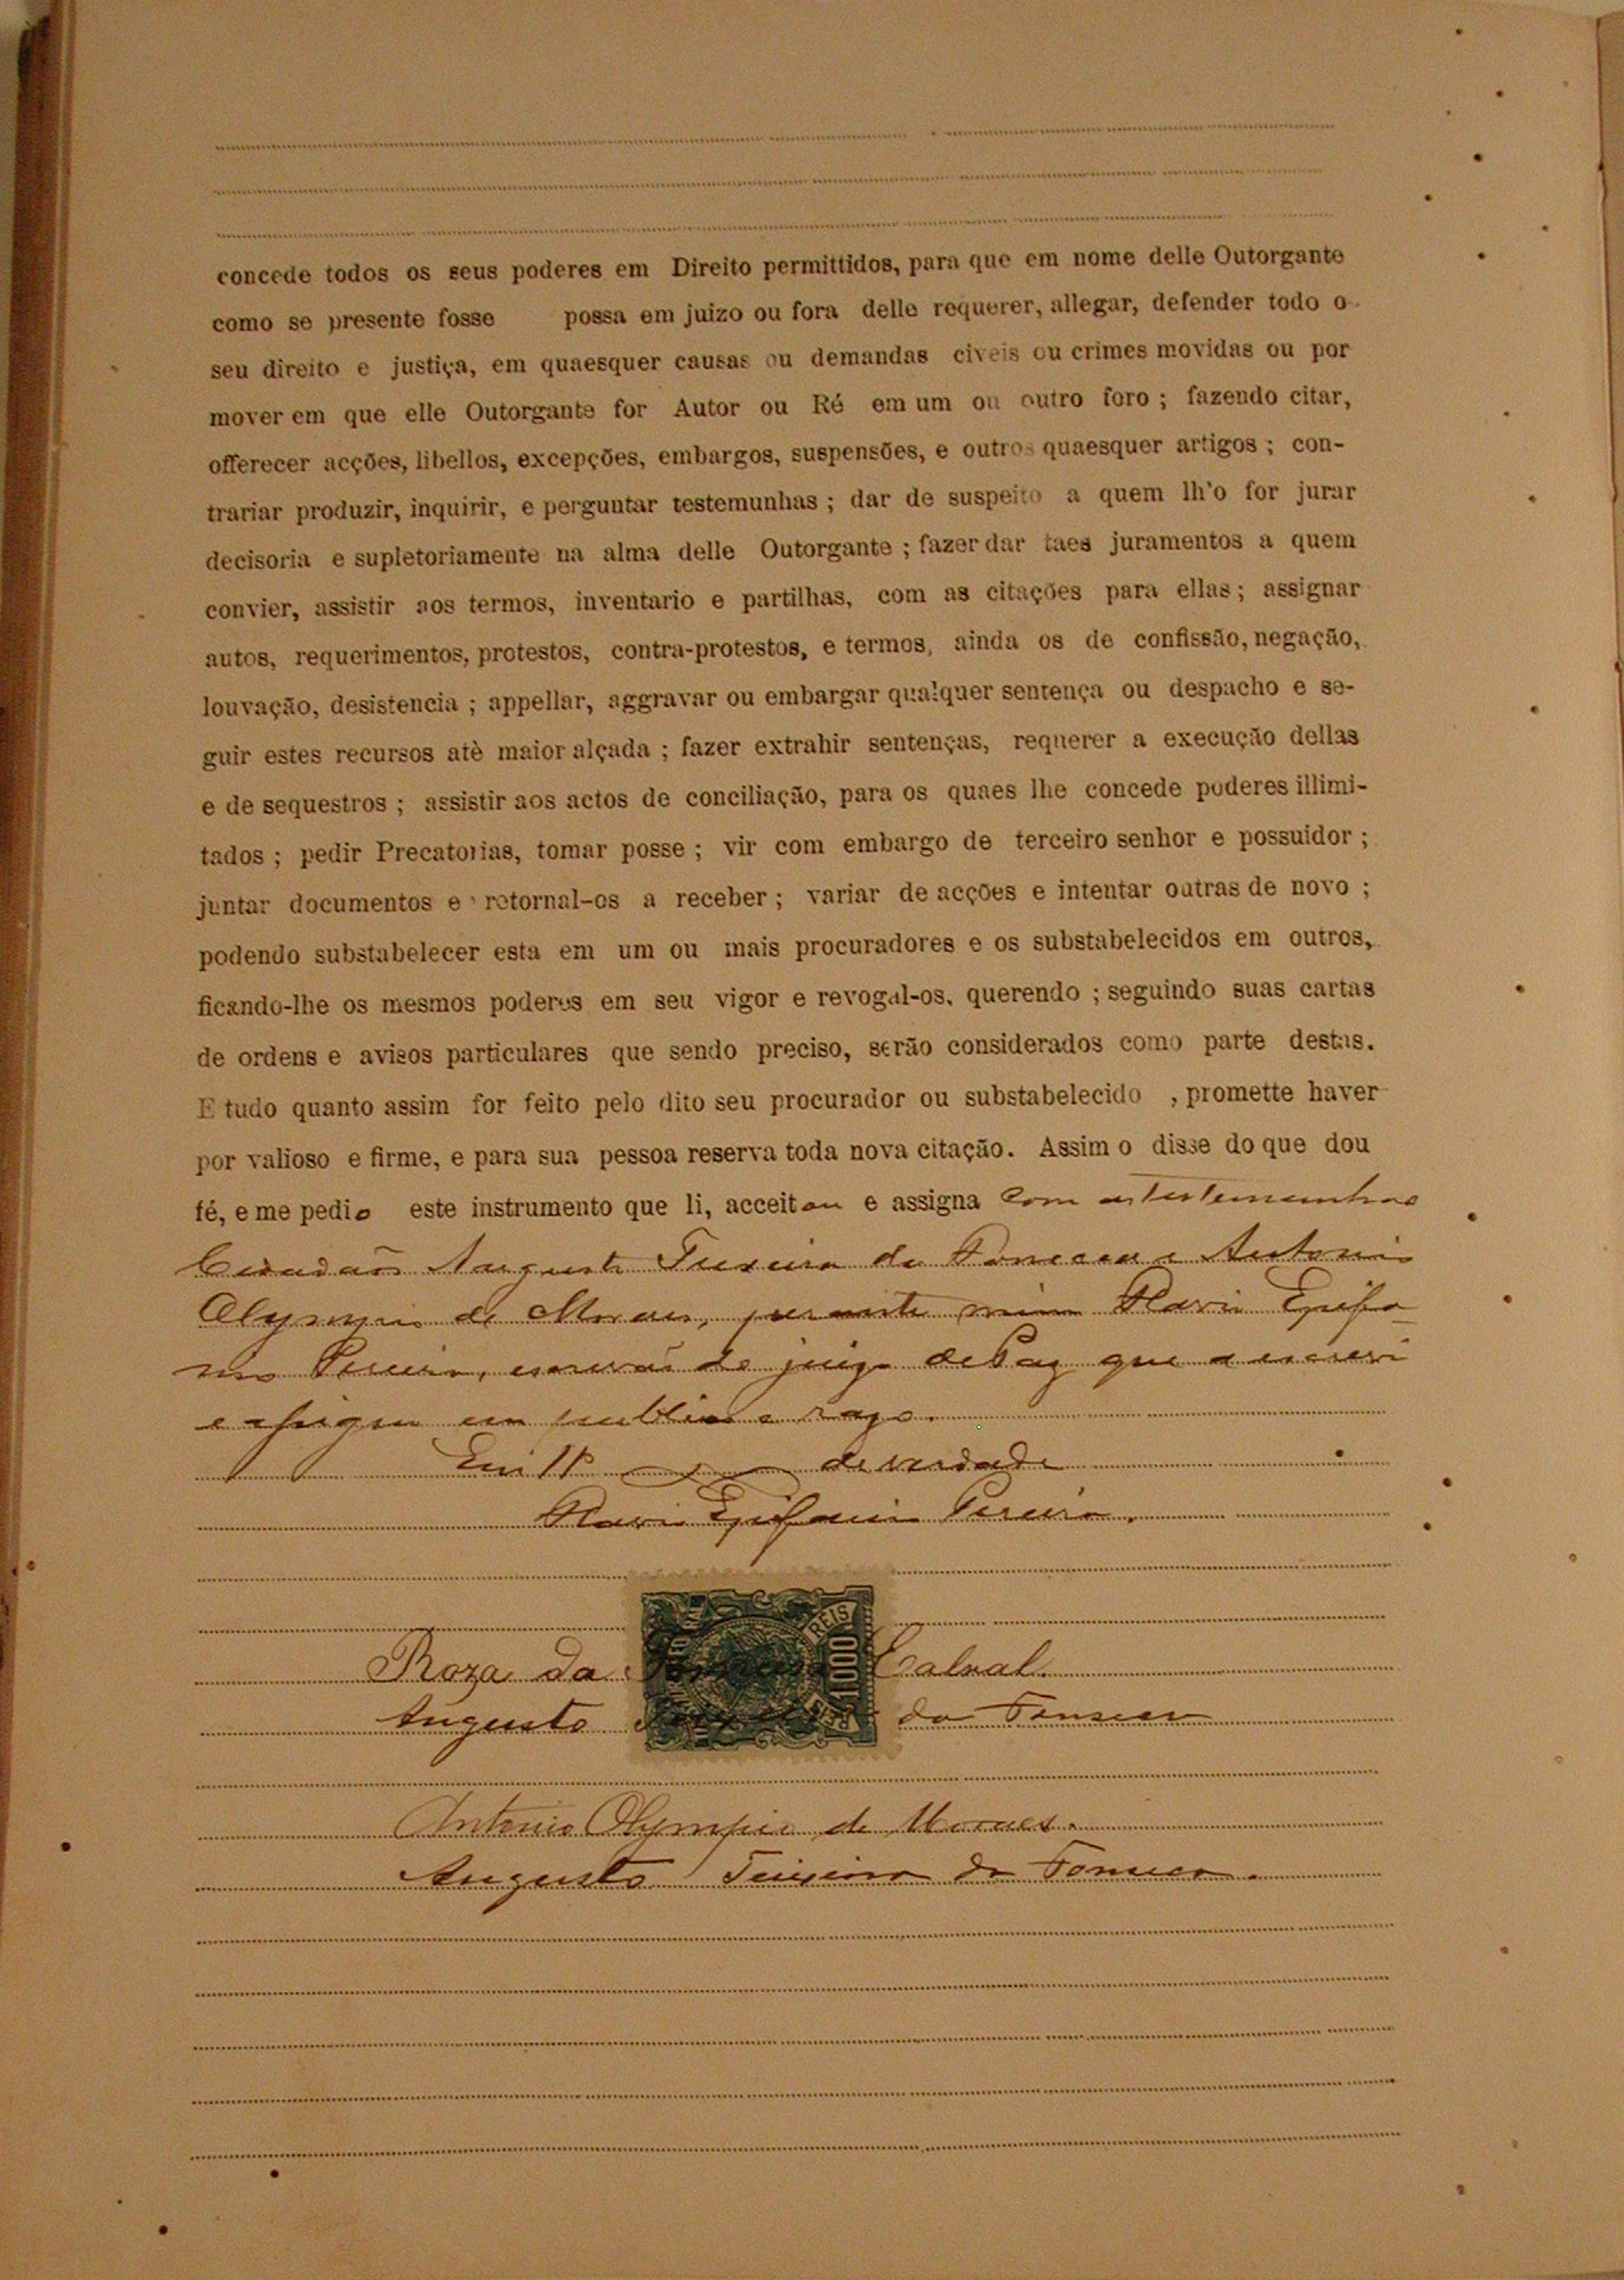 concede todos os seus poderes em Direito permittidos, para que em nome delle Outorgante
como se presente fosse possa em juizo ou fora delle requerer, allegar, defender todo o
seu direito e justiça, em quaesquer causas ou demandas civeis ou crimes movidas ou por
mover em que elle Outorgante for Autor ou Ré em um ou outro foro ; fazendo citar,
offerecer acções, libellos, excepções, embargos, suspensões, e outros quaesquer artigos ; con-
trariar produzir, inquirir, e perguntar testemunhas ; dar de suspeito a quem lh'o for jurar
decisoria e supletoriamente na alma delle Outorgante ; fazer dar taes juramentos a quem
convier, assistir aos termos, inventario e partilhas, com as citações para ellas ; assignar
autos, requerimentos, protestos, contra-protestos, e termos, ainda os de confissão, negação,
louvação, desistencia ; appellar, aggravar ou embargar qualquer sentença ou despacho e se-
guir estes recursos atè maior alçada ; fazer extrahir sentenças, requerer a execução dellas
e de sequestros ; assistir aos actos de conciliação, para os quaes lhe concede poderes illimi-
tados ; pedir Precatorias, tomar posse ; vir com embargo de terceiro senhor e possuidor ;
juntar documentos e retornal-os a receber ; variar de acções e intentar outras de novo ;
podendo substabelecer esta em um ou mais procuradores e os substabelecidos em outros,
ficando-lhe os mesmos poderes em seu vigor e revogal-os, querendo ; seguindo suas cartas
de ordens e avisos particulares que sendo preciso, serão considerados como parte destas.
E tudo quanto assim for feito pelo dito seu procurador ou substabelecido , promette haver
por valioso e firme, e para sua pessoa reserva toda nova citação. Assim o disse do que dou
fé, e me pedio este instrumento que li, acceitou e assigna com as testemunhas
Augusto de Antonio
Olympio de Moraes, perante mim
de juiz de Paz que a escrevi
e assigno em publico e razo.
Em de verdade
Pereira
REIS
Roza da Cabral
Augusto da
Antonio Olympio de Moraes
Augusto de